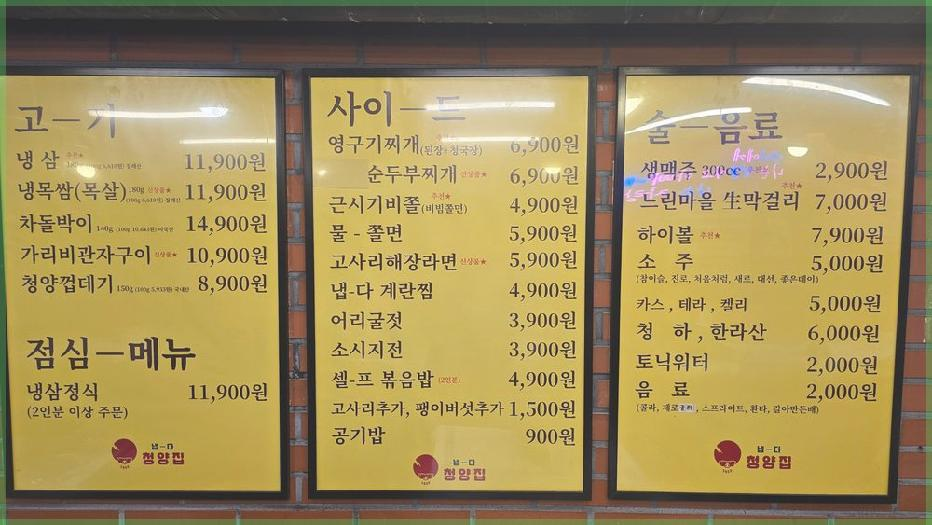 고-기
냉 삼 추천★ 11,900원
냉목쌈(목살) 180g 신상품★ 11,900원
차돌박이 14,900원
가리비관자구이 신상품★ 10,900원
청양껍데기 150g 8,900원
점심-메뉴
냉삼정식 11,900원
(2인분 이상 주문)
냅-다
청양집
사이-드
영구기찌개(된장+청국장) 6,900원
순두부찌개 신상품★ 6,900원
추천★
근시기비쫄(비빔쫄면) 4,900원
물-쫄면 5,900원
고사리해상라면 신상품★ 5,900원
냅-다 계란찜 4,900원
어리굴젓 3,900원
소시지전 3,900원
셀-프 볶음밥 (2인분) 4,900원
고사리추가, 팽이버섯추가 1,500원
공기밥 900원
냅-다
청양집
술-음료
생맥주 300cc 추천★ 2,900원
추천★
느린마을 生막걸리 7,000원
하이볼 추천★ 7,900원
소 주 5,000원
(참이슬, 진로, 처음처럼, 새로, 대선, 좋은데이)
카스, 테라, 켈리 5,000원
청 하, 한라산 6,000원
토닉워터 2,000원
음 료 2,000원
(콜라, 제로콜라, 스프라이트, 환타, 갈아만든배)
냅-다
청양집